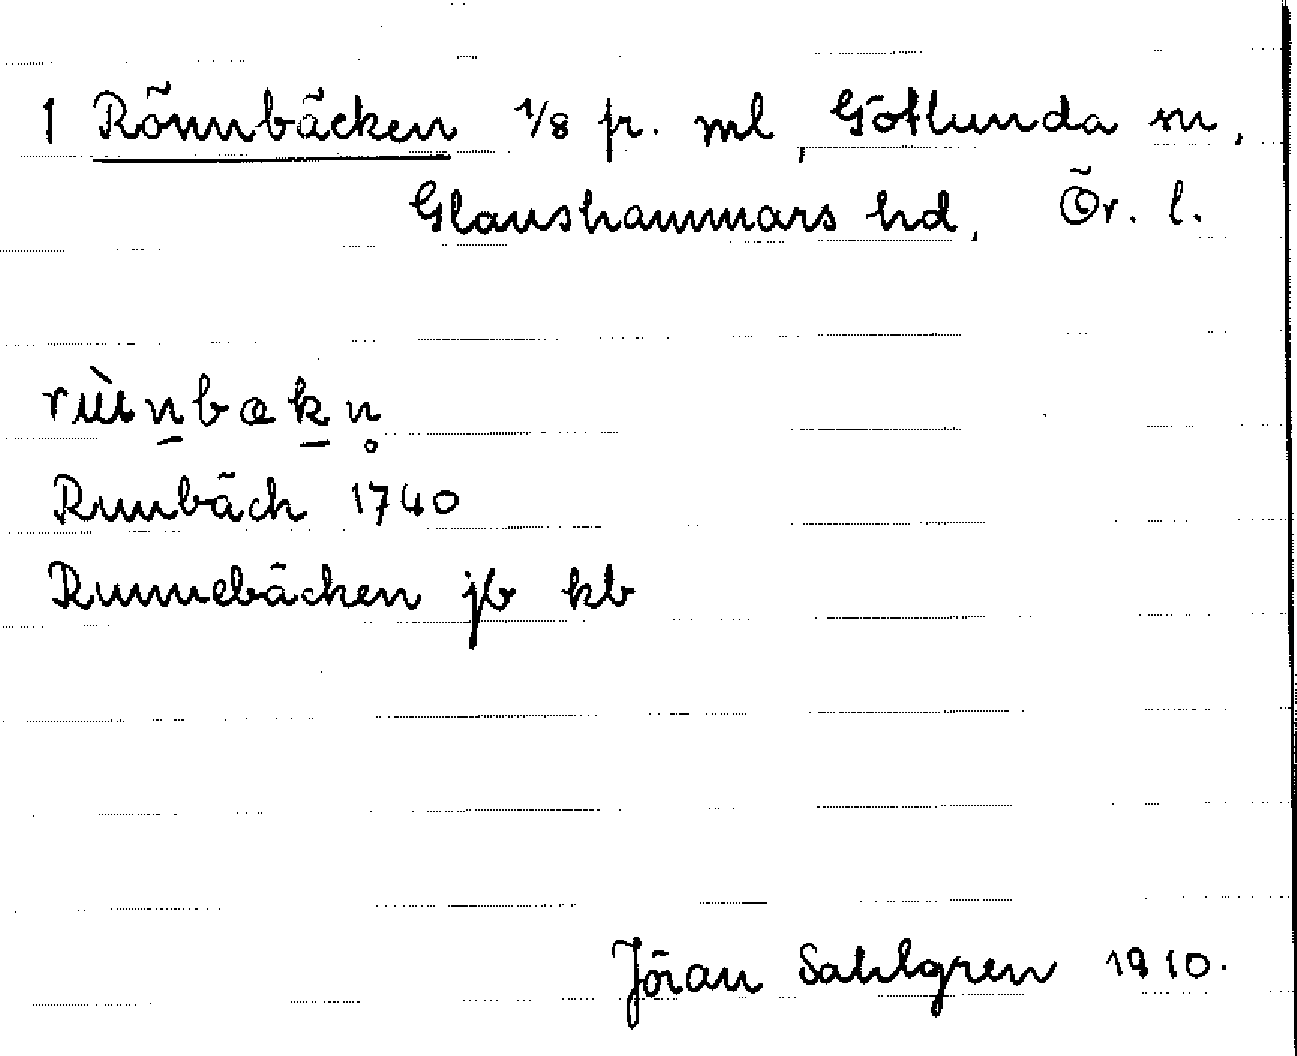 1 Rönnbäcken 1/8 fr. ml, Götlunda sn,
Glanshammars hd, Ör. l.
Runbäck 1740
Runnebäcken jb kb
Jöran Sahlgren 1910.